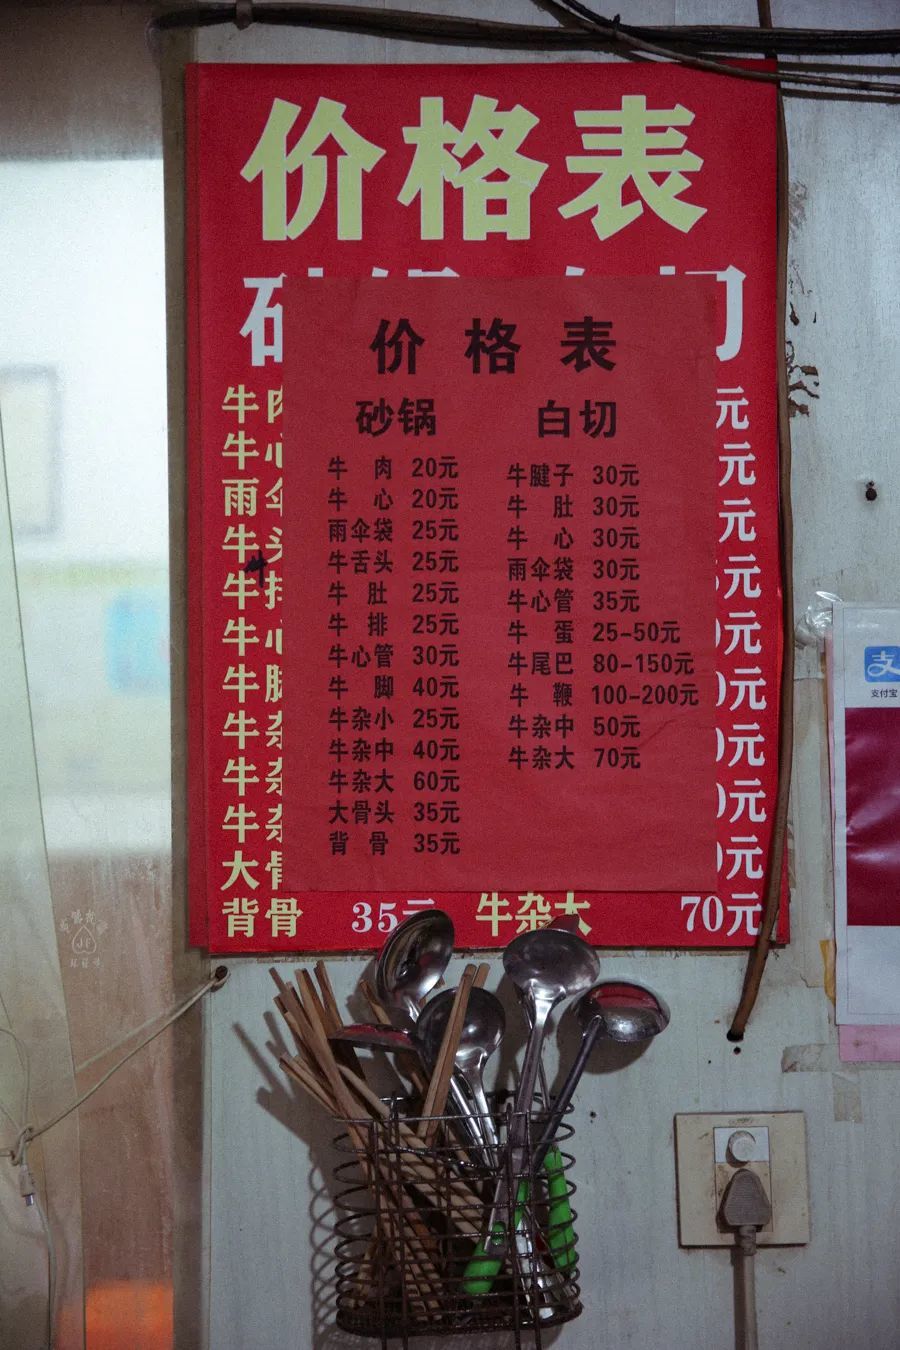 价格表
价格表
砂锅 白切
牛肉 20元 牛腱子 30元
牛心 20元 牛肚 30元
雨伞袋 25元 牛心 30元
牛舌头 25元 雨伞袋 30元
牛肚 25元 牛心管 35元
牛排 25元 牛蛋 25-50元
牛心管 30元 牛尾巴 80-150元
牛脚 40元 牛鞭 100-200元
牛杂小 25元 牛杂中 50元
牛杂中 40元 牛杂大 70元
牛杂大 60元
大骨头 35元
背骨 35元
牛肉 元
牛心 元
雨伞 元
牛 元
牛排 元
牛心 元
牛脚 元
牛杂 元
牛杂 元
牛杂 元
大骨
背骨 35元 牛杂大 70元
支付宝